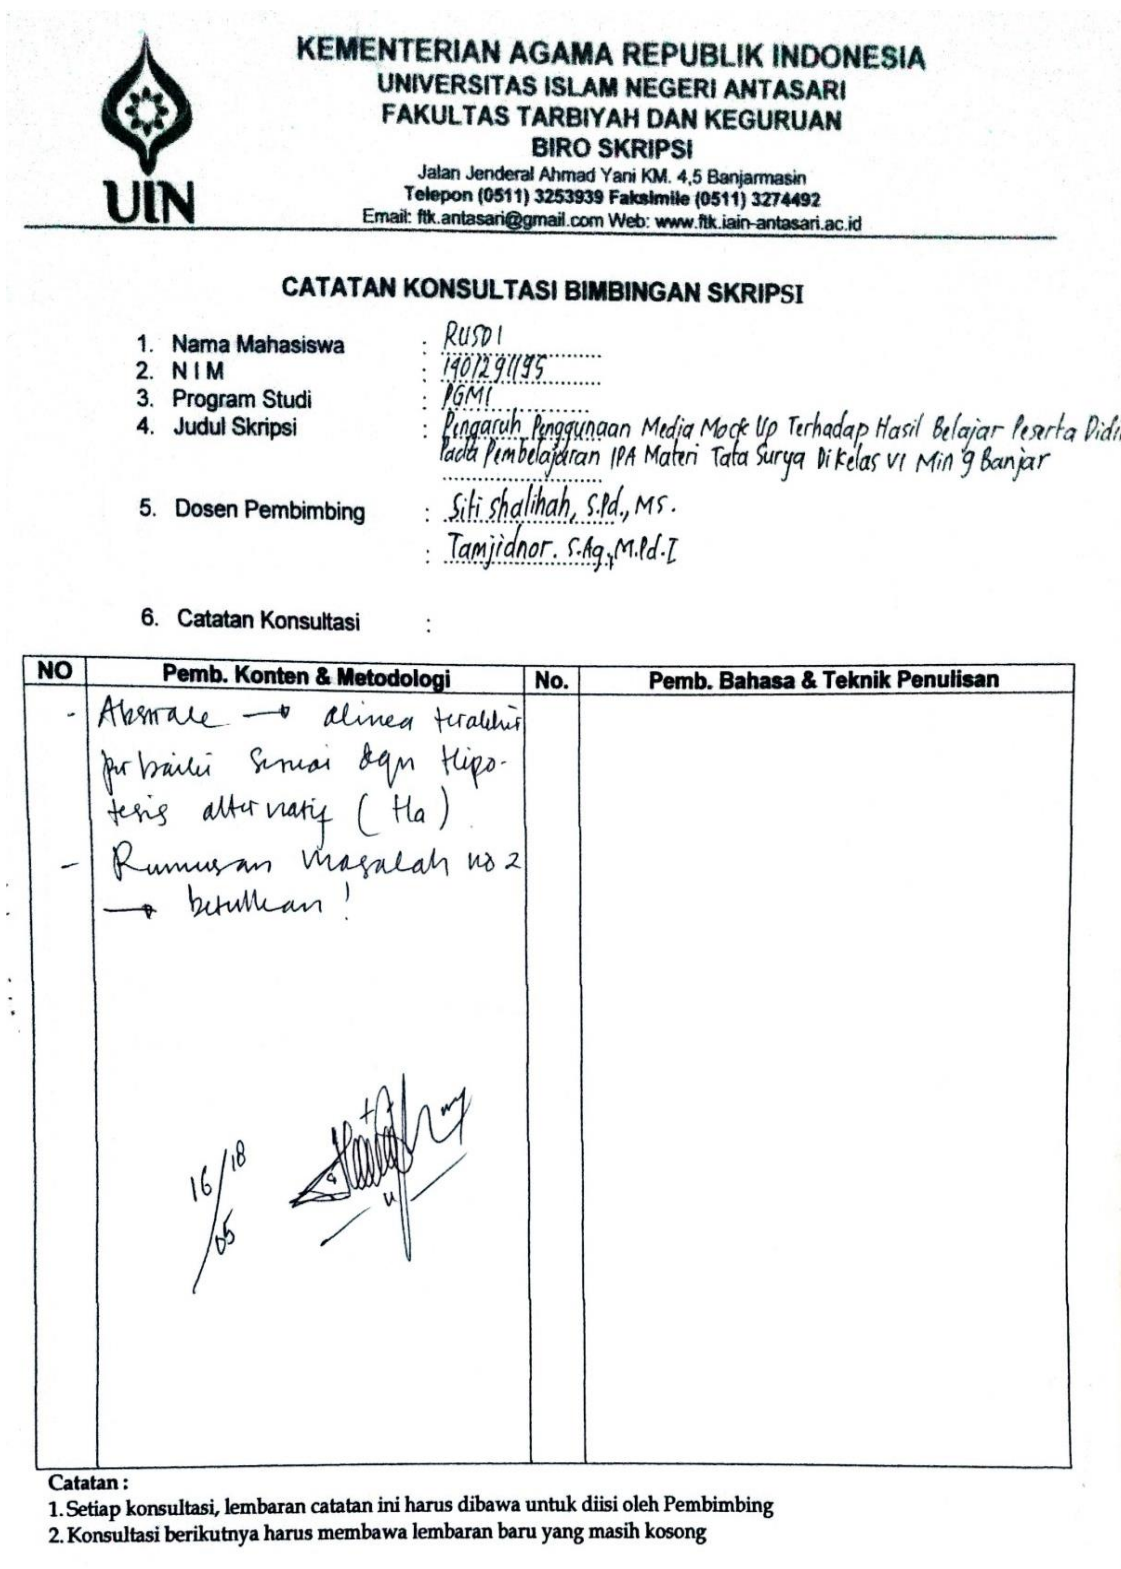 KEMENTERIAN AGAMA REPUBLIK INDONESIA
UNIVERSITAS ISLAM NEGERI ANTASARI
FAKULTAS TARBIYAH DAN KEGURUAN
BIRO SKRIPSI
Jalan Jenderal Ahmad Yani KM. 4,5 Banjarmasin
Telepon (0511) 3253939 Faksimile (0511) 3274492
Email: ftk.antasari@gmail.com Web: www.ftk.iain-antasari.ac.id
UIN
CATATAN KONSULTASI BIMBINGAN SKRIPSI
1. Nama Mahasiswa : RUSDI
2. N I M : 1401291195
3. Program Studi : PGMI
4. Judul Skripsi : Pengaruh Penggunaan Media Mock Up Terhadap Hasil Belajar Peserta Didi
Pada Pembelajaran IPA Materi Tata Surya Di kelas VI Min 9 Banjar
5. Dosen Pembimbing : Siti shalihah, S.Pd., MS.
: Tamjidnor. S.Ag., M.Pd.I
6. Catatan Konsultasi :
NO Pemb. Konten & Metodologi No. Pemb. Bahasa & Teknik Penulisan
- Abstrak → alinea terakhir
perbaiki sesuai dgn Hipo-
tesis alternatif (Ha)
- Rumusan masalah no 2
→ betulkan !
16/05/18
Catatan :
1. Setiap konsultasi, lembaran catatan ini harus dibawa untuk diisi oleh Pembimbing
2. Konsultasi berikutnya harus membawa lembaran baru yang masih kosong